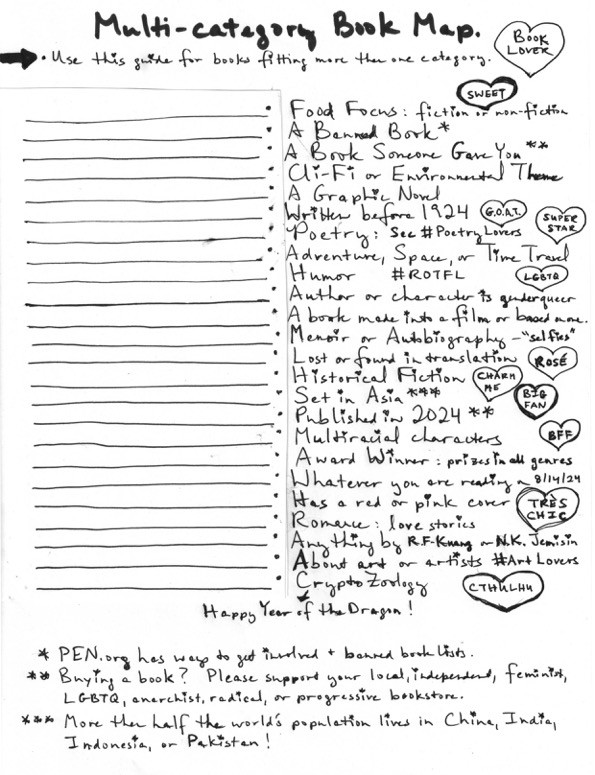 Multi-category Book Map.
• Use this guide for books fitting more then one category.
BOOK LOVER
SWEET
• Food Focus: fiction or non-fiction
• A Banned Book*
• A Book Someone Gave You**
• Cli-Fi or Environmental Theme
• A Graphic Novel
• Written before 1924 G.O.A.T.
• Poetry: See #PoetryLovers SUPER STAR
• Adventure, Space, or Time Travel
• Humor #ROTFL LGBTQ
• Author or character is genderqueer
• A book made into a film or based on one.
• Memoir or Autobiography - "selfies"
• Lost or found in translation ROSÉ
• Historical Fiction CHARM ME
• Set in Asia*** BIG FAN
• Published in 2024**
• Multiracial characters BFF
• Award Winner: prizes in all genres
• Whatever you are reading on 8/14/24
• Has a red or pink cover TRÈS CHIC
• Romance: love stories
• Anything by R.F. Kuang or N.K. Jemisin
• About art or artists #Art Lovers
• CryptoZoology CTHULHU
Happy Year of the Dragon!
* PEN.org has ways to get involved + banned book lists.
** Buying a book? Please support your local, independent, feminist,
LGBTQ, anarchist, radical, or progressive bookstore.
*** More then half the world's population lives in China, India,
Indonesia, or Pakistan!